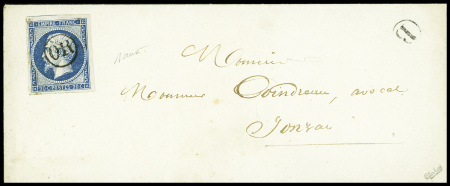 EMPIRE FRANC
OR
20 C. POSTES 20 C.
Monsieur
Monsieur Coindreau, avocat
Jonzac